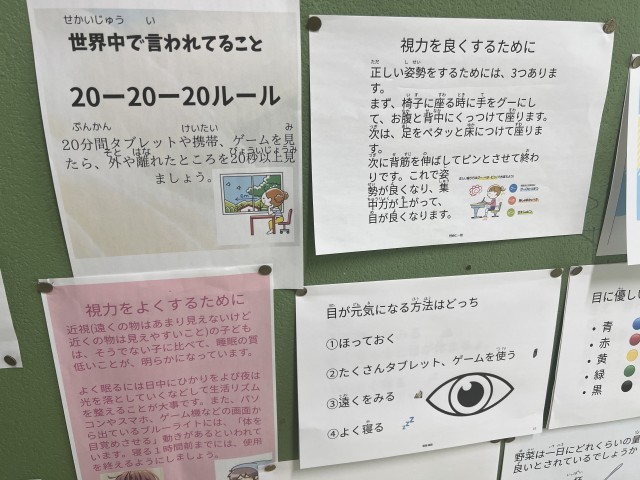 世界中で言われてること
20ー20ー20ルール
20分間タブレットや携帯、ゲームを見
たら、外や離れたところを20秒以上見
ましょう。
視力を良くするために
正しい姿勢をするためには、3つありま
す。
まず、椅子に座る時に手をグーにし
て、お腹と背中にくっつけて座ります。
次は、足をペタッと床につけて座りま
す。
次に背筋を伸ばしてピンとさせて終わ
りです。これで姿
勢が良くなり、集
中力が上がって、
目が良くなります。
視力をよくするために
近視(遠くの物はあまり見えないけど
近くの物は見えやすいこと)の子ども
は、そうでない子に比べて、睡眠の質
低いことが、明らかになっています。
よく眠るには日中にひかりをよび夜は
光を落としていくなどして生活リズム
を整えることが大事です。また、パソ
コンやスマホ、ゲーム機などの画面か
ら出ているブルーライトには、「体を
目覚めさせる」動きがあるといわれて
います。寝る1時間前までには、使用
を終えるようにしましょう。
目が元気になる方法はどっち
①ほっておく
②たくさんタブレット、ゲームを使う
③遠くをみる
④よく寝る
目に優し
・青
・赤
・黄
・緑
・黒
野菜は一日にどれくらいの量
良いとされているでしょうか